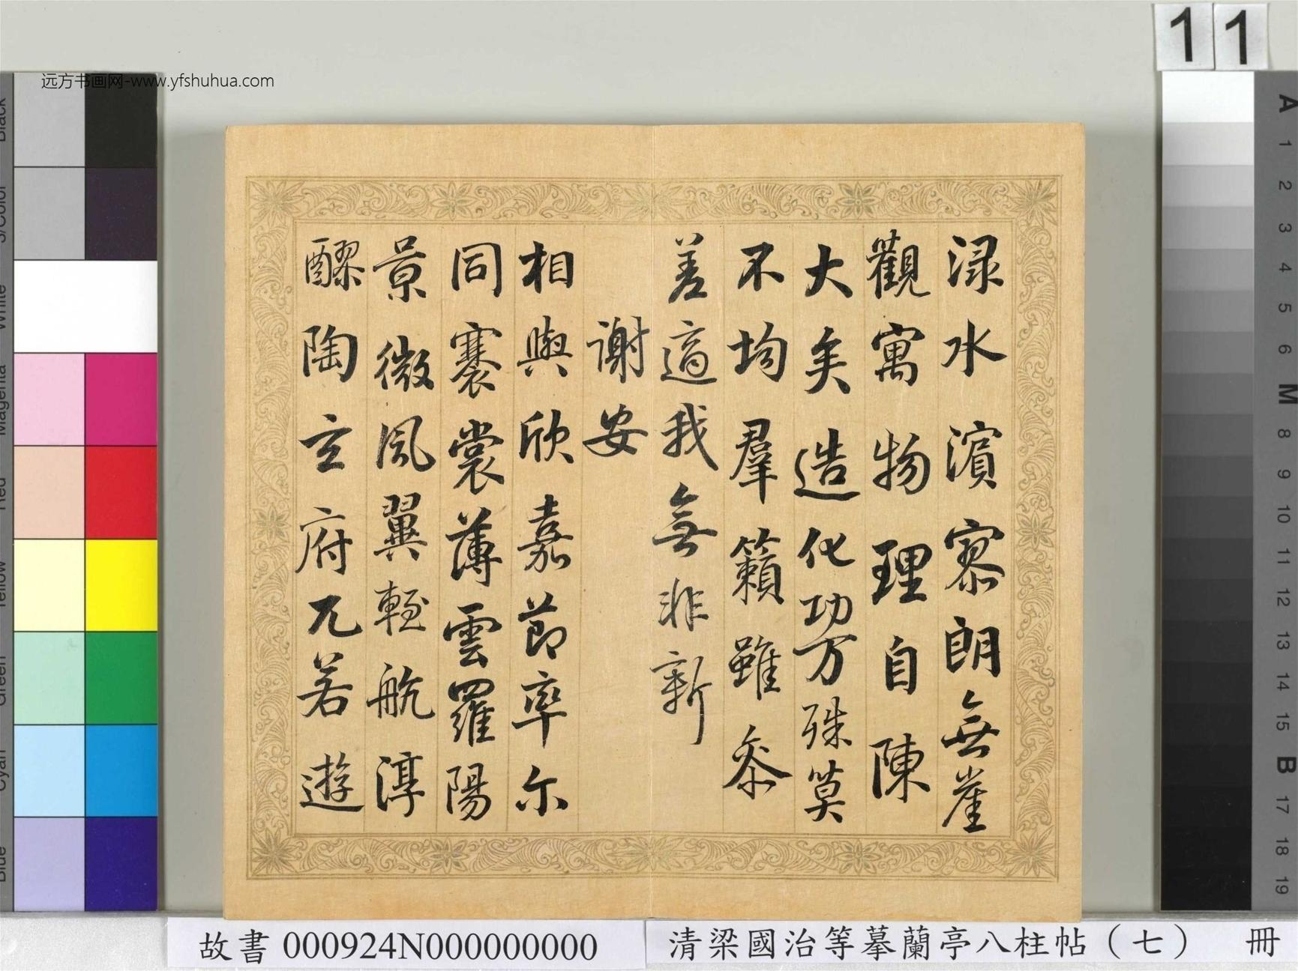 渌水濵寥朗無崖
觀寓物理自陳
大矣造化功万殊莫
不均羣籟雖叅
差適我無非新
謝安
相與欣嘉節率尓
同褰裳薄雲羅陽
景微風翼輕航淳
醪陶玄府兀若遊
远方书画网-www.yfshuhua.com
11
故書 000924N000000000
清梁國治等摹蘭亭八柱帖（七） 冊
Black
3/Color
White
Magenta
Red
Yellow
Green
Cyan
Blue
A
1
2
3
4
5
6
M
8
9
10
11
12
13
14
15
B
17
18
19